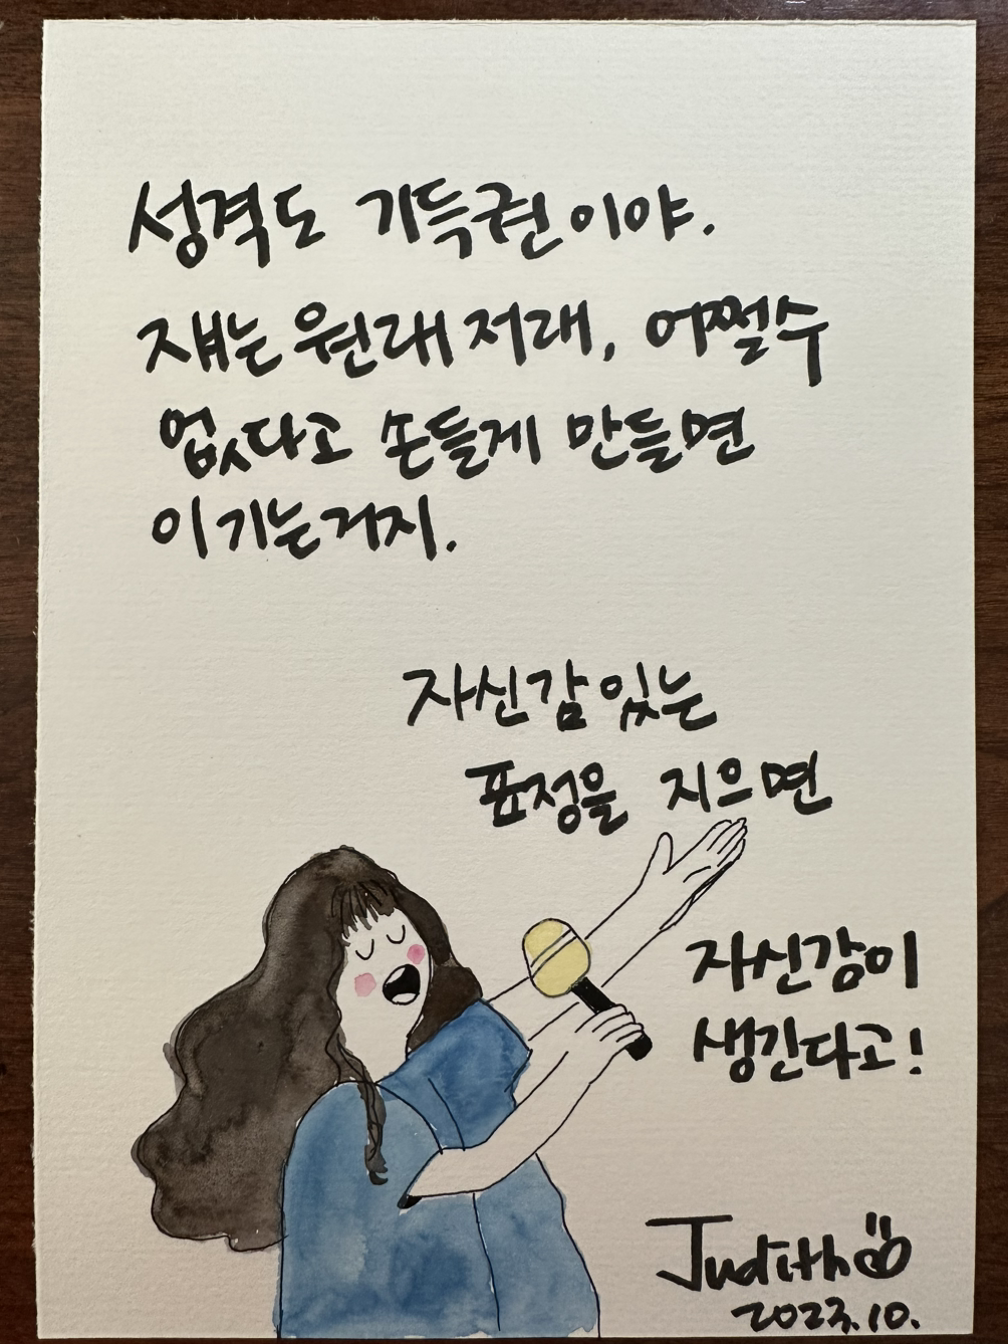 성격도 기득권이야.
쟤는 원래 저래, 어쩔수
없다고 손들게 만들면
이기는거지.
자신감있는
표정을 지으면
자신감이
생긴다고!
Judith
2023.10.